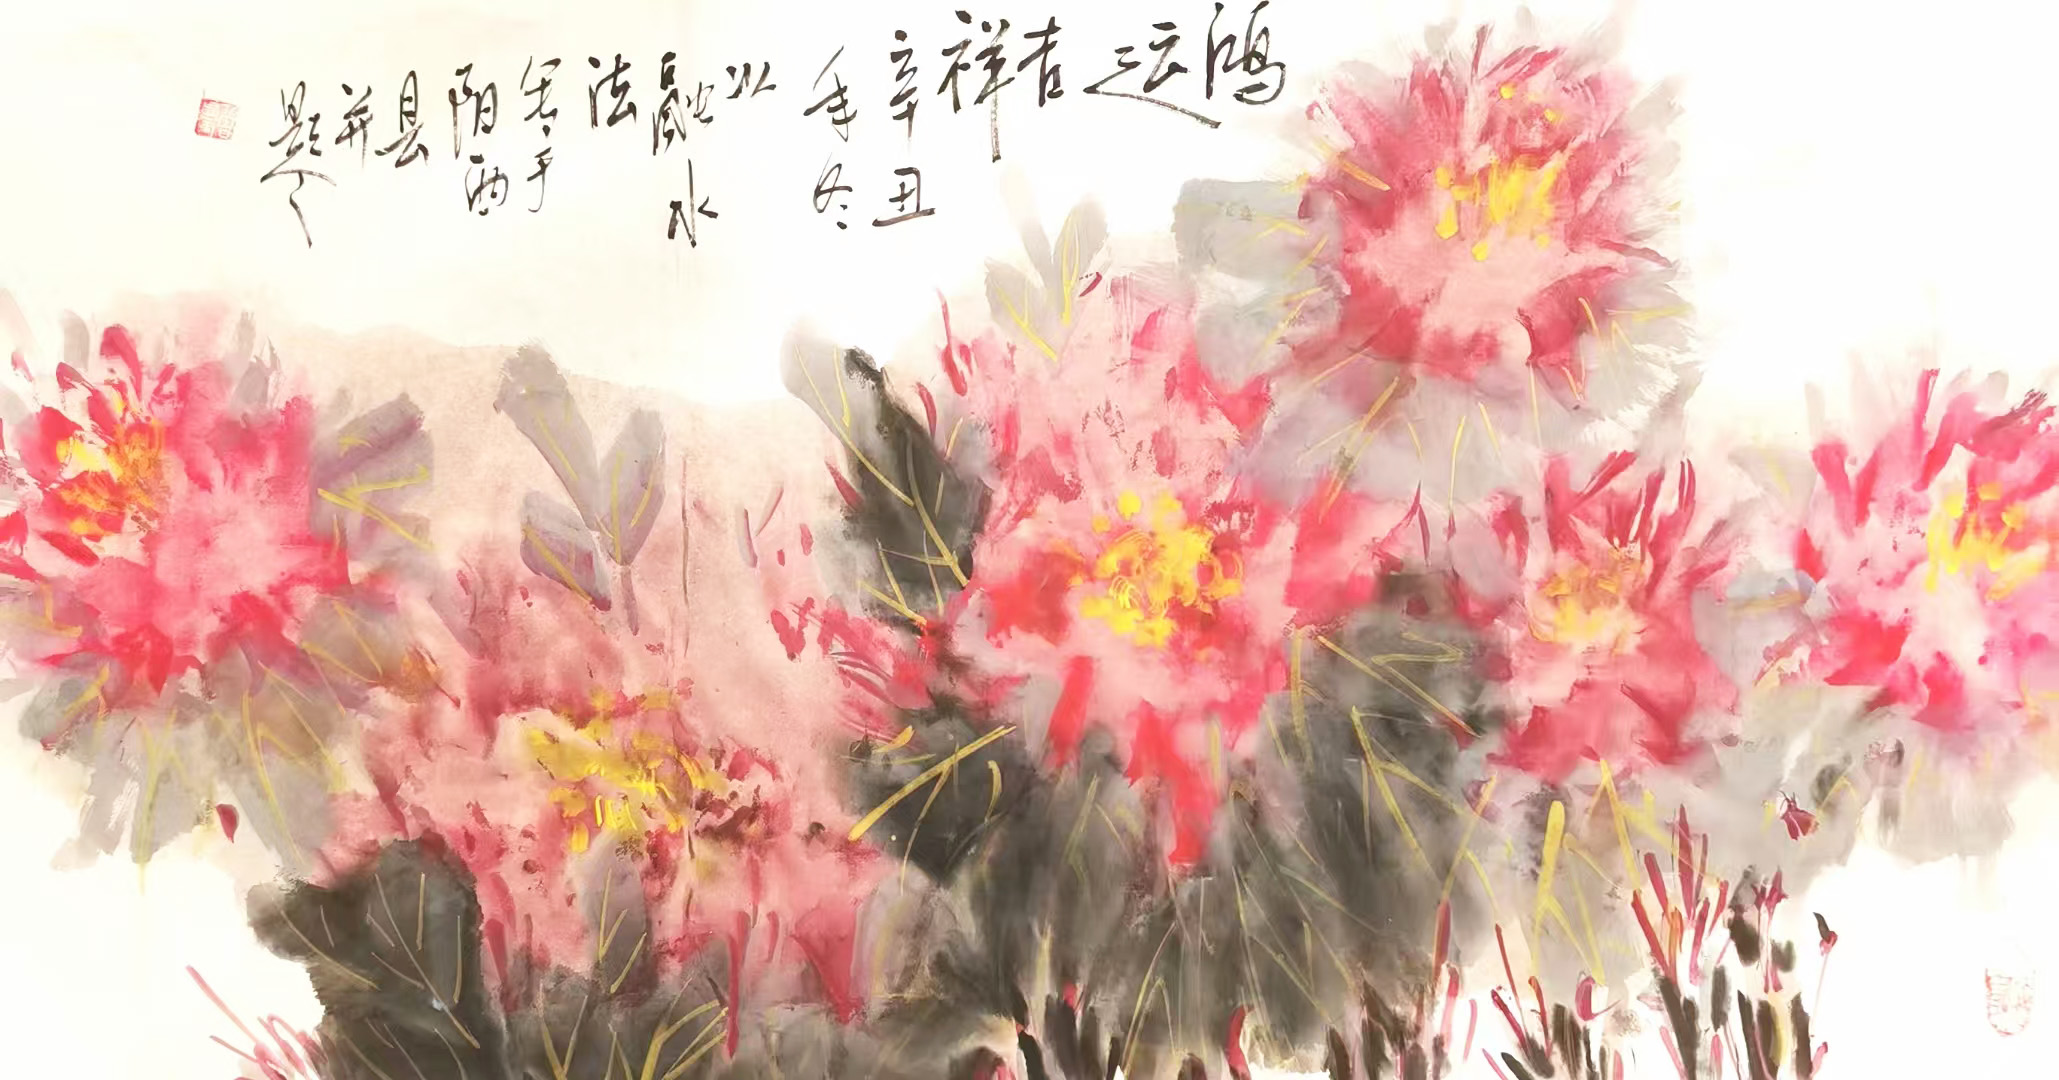 鸿
运
吉
祥
辛丑
年冬
以
融水
法写于
阳西
县
并
题